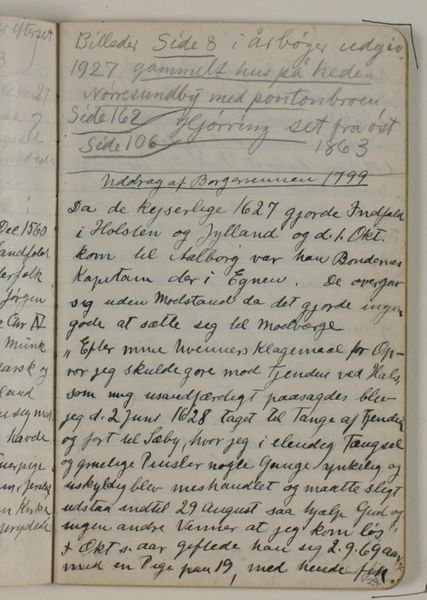 Billeder Side 8 i årbøger udgiv
1927 gammelt hus på heden
Nørresundby med pontonbroen
Side 162 Hjørring set fra øst
Side 106 1863
Uddrag af Borgervennen 1799
Da de kejserlige 1627 gjorde Indfald
i Holsten og Jylland og d. 1. Okt.
kom til Aalborg var han Bøndernes
Kaptain der i Egnen. De overgav
sig uden Modstand da det gjorde ingen
gode at sætte sig til Modværge
"Efter mine Uvenners Klagemaal for Op-
rør jeg skulde gøre mod Fjenden ved Hals,
som mig usandfærdigt paasagdes blev
jeg d. 2 Juni 1628 taget til Fange af Fjenden
og ført til Sæby, hvor jeg i elendig Fængsel
og gruelige Pinsler nogle Gange ynkelig og
uskyldig blev mishandlet og maatte sligt
udstaa indtil 29 August saa hjalp Gud og
ingen andre Venner at jeg kom løs"
Okt s. aar giftede han sig 2. g. 69 aar
med en Pige paa 19, med hende fik
Dec 1560
Jørgen
Chr IV
Munk
havde